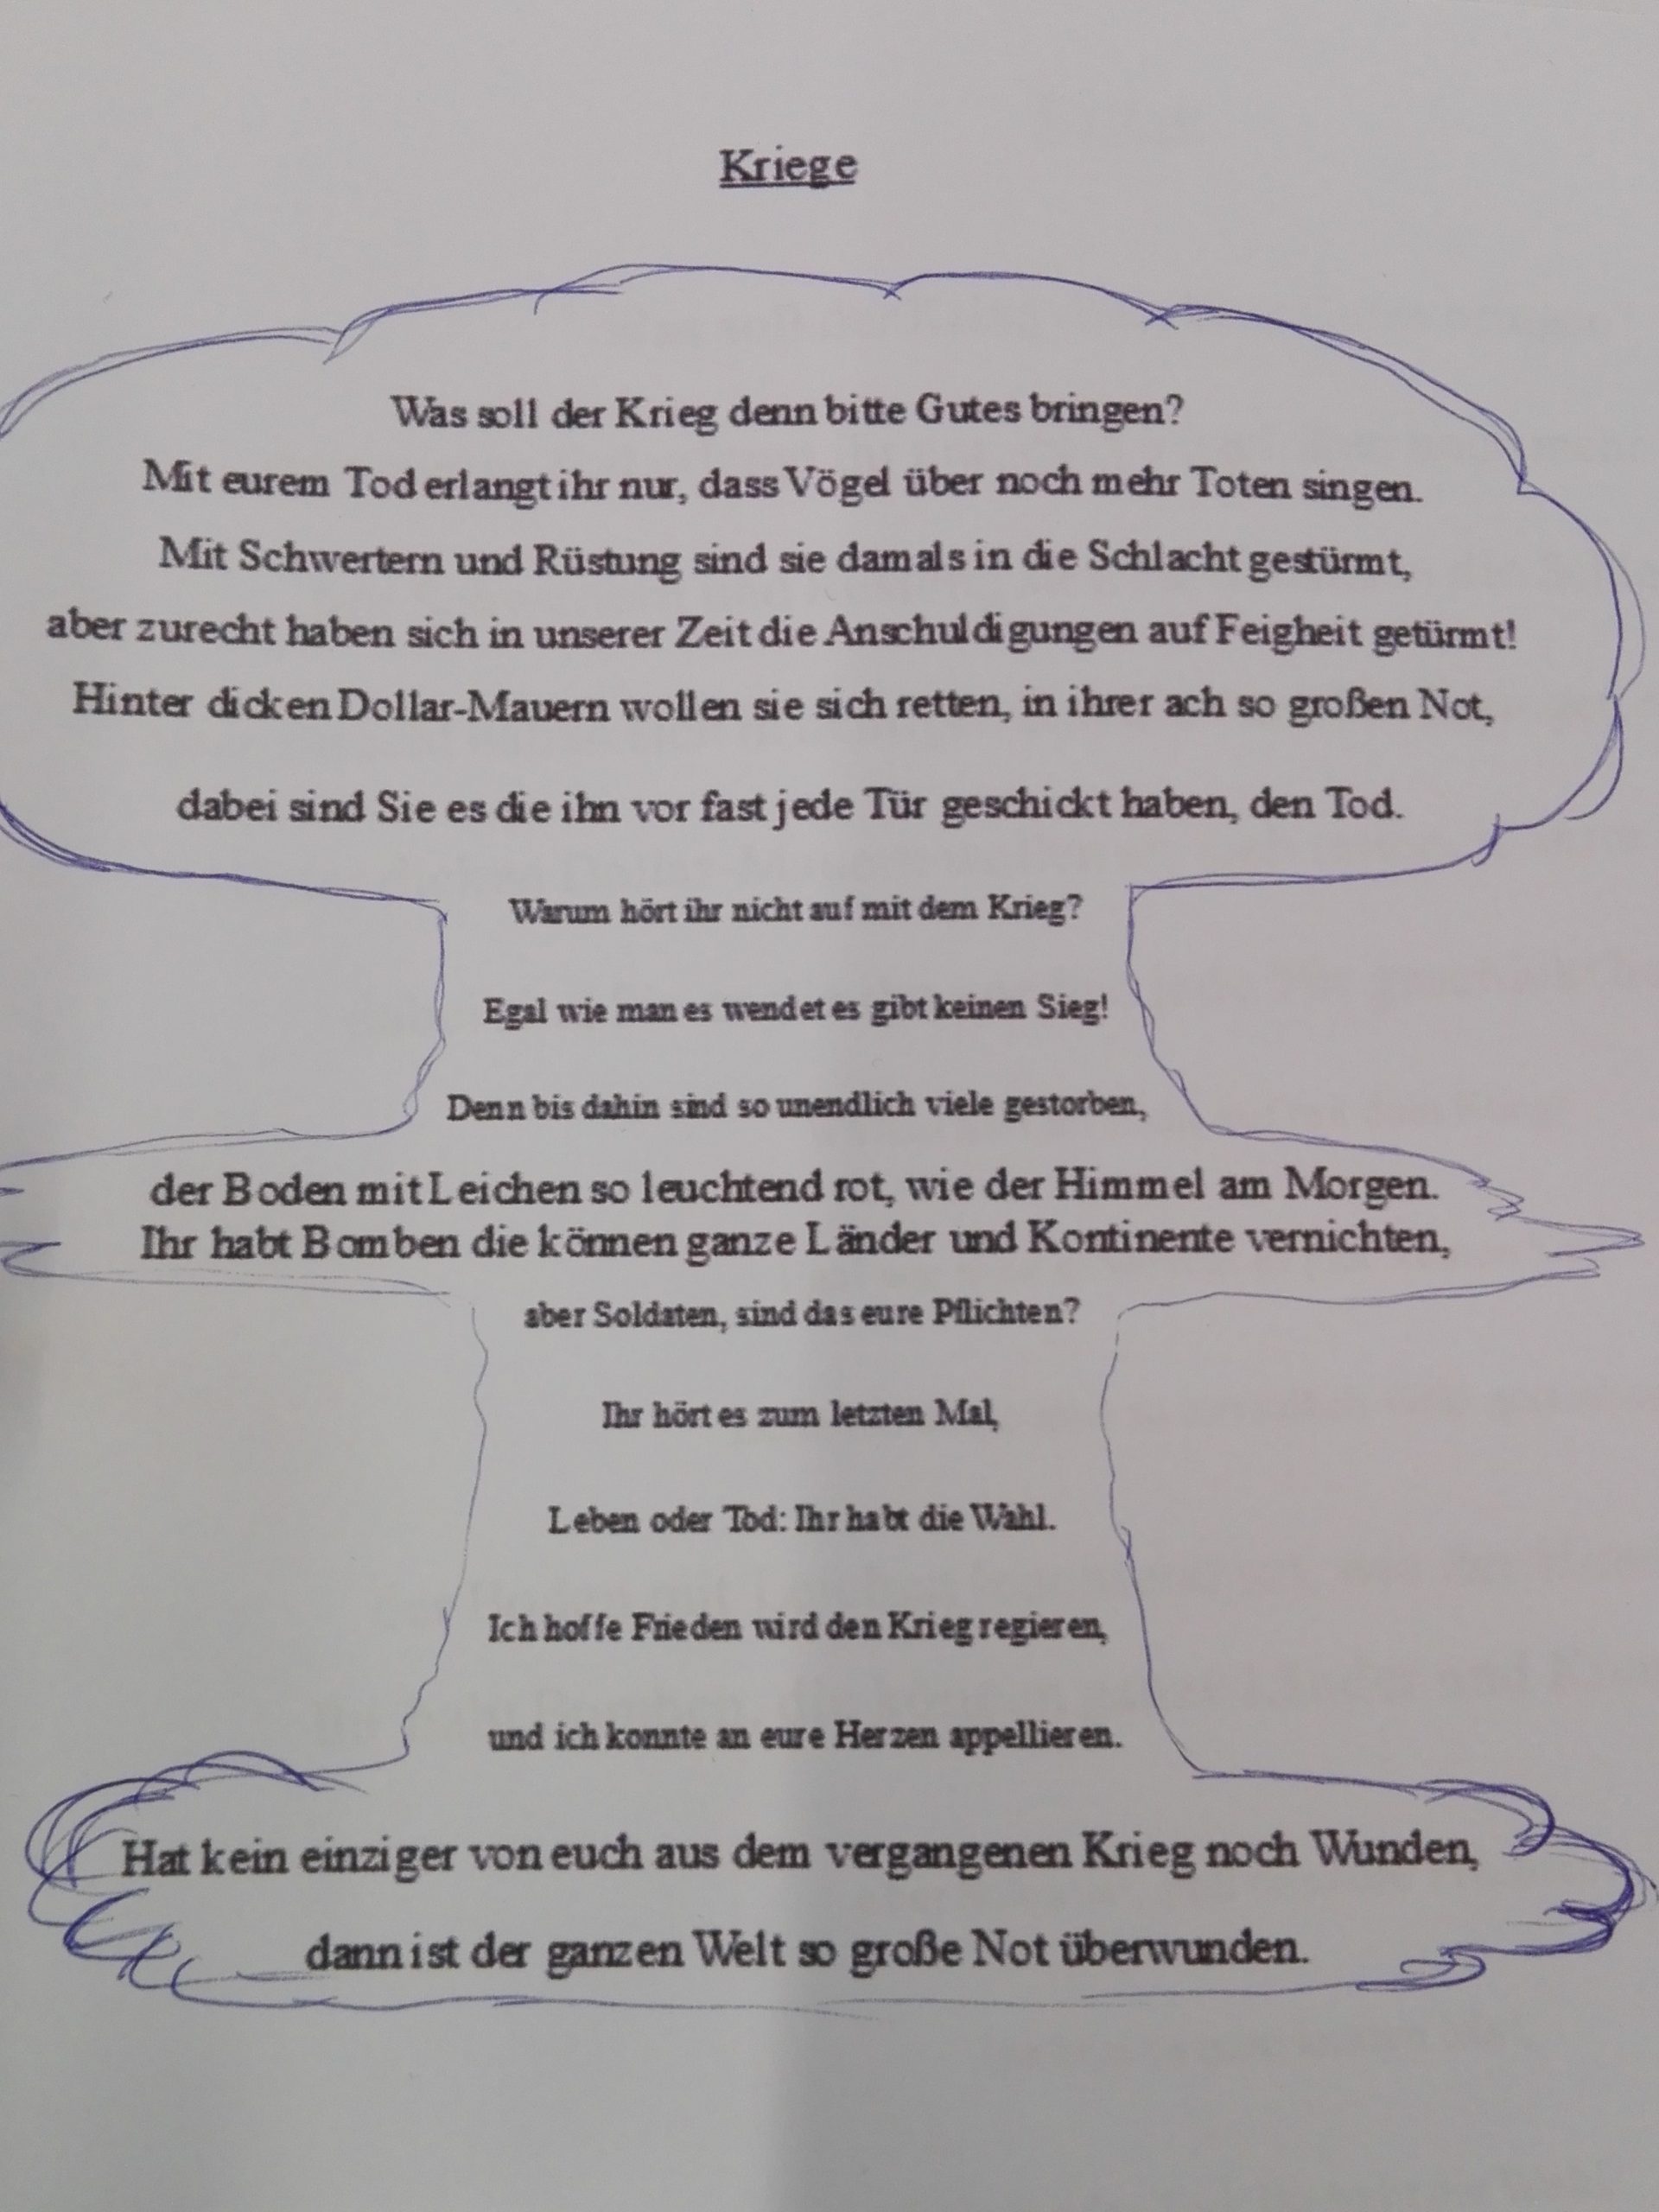 Kriege
Was soll der Krieg denn bitte Gutes bringen?
Mit eurem Tod erlangt ihr nur, dass Vögel über noch mehr Toten singen.
Mit Schwertern und Rüstung sind sie damals in die Schlacht gestürmt,
aber zurecht haben sich in unserer Zeit die Anschuldigungen auf Feigheit getürmt!
Hinter dicken Dollar-Mauern wollen sie sich retten, in ihrer ach so großen Not,
dabei sind Sie es die ihn vor fast jede Tür geschickt haben, den Tod.
Warum hört ihr nicht auf mit dem Krieg?
Egal wie man es wendet es gibt keinen Sieg!
Denn bis dahin sind so unendlich viele gestorben,
der Boden mit Leichen so leuchtend rot, wie der Himmel am Morgen.
Ihr habt Bomben die können ganze Länder und Kontinente vernichten,
aber Soldaten, sind das eure Pflichten?
Ihr hört es zum letzten Mal,
Leben oder Tod: Ihr habt die Wahl.
Ich hoffe Frieden wird den Krieg regieren,
und ich konnte an eure Herzen appellieren.
Hat kein einziger von euch aus dem vergangenen Krieg noch Wunden,
dann ist der ganzen Welt so große Not überwunden.